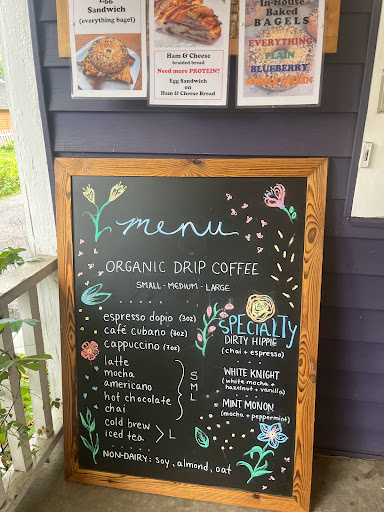 Egg
Sandwich
(everything bagel)
Ham & Cheese
braided bread
Need more PROTEIN?
Egg Sandwich
on
Ham & Cheese Bread
In-House
Baked
BAGELS
EVERYTHING
PLAIN
BLUEBERRY
menu
ORGANIC DRIP COFFEE
SMALL - MEDIUM - LARGE
espresso dopio (3oz)
café cubano (8oz)
cappuccino (7oz)
latte
mocha
americano
hot chocolate
chai
S
M
L
cold brew
iced tea > L
NON-DAIRY: soy, almond, oat
SPECIALTY
DIRTY HIPPIE
(chai + espresso)
WHITE KNIGHT
(white mocha +
hazelnut + vanilla)
MINT MONON
(mocha + peppermint)